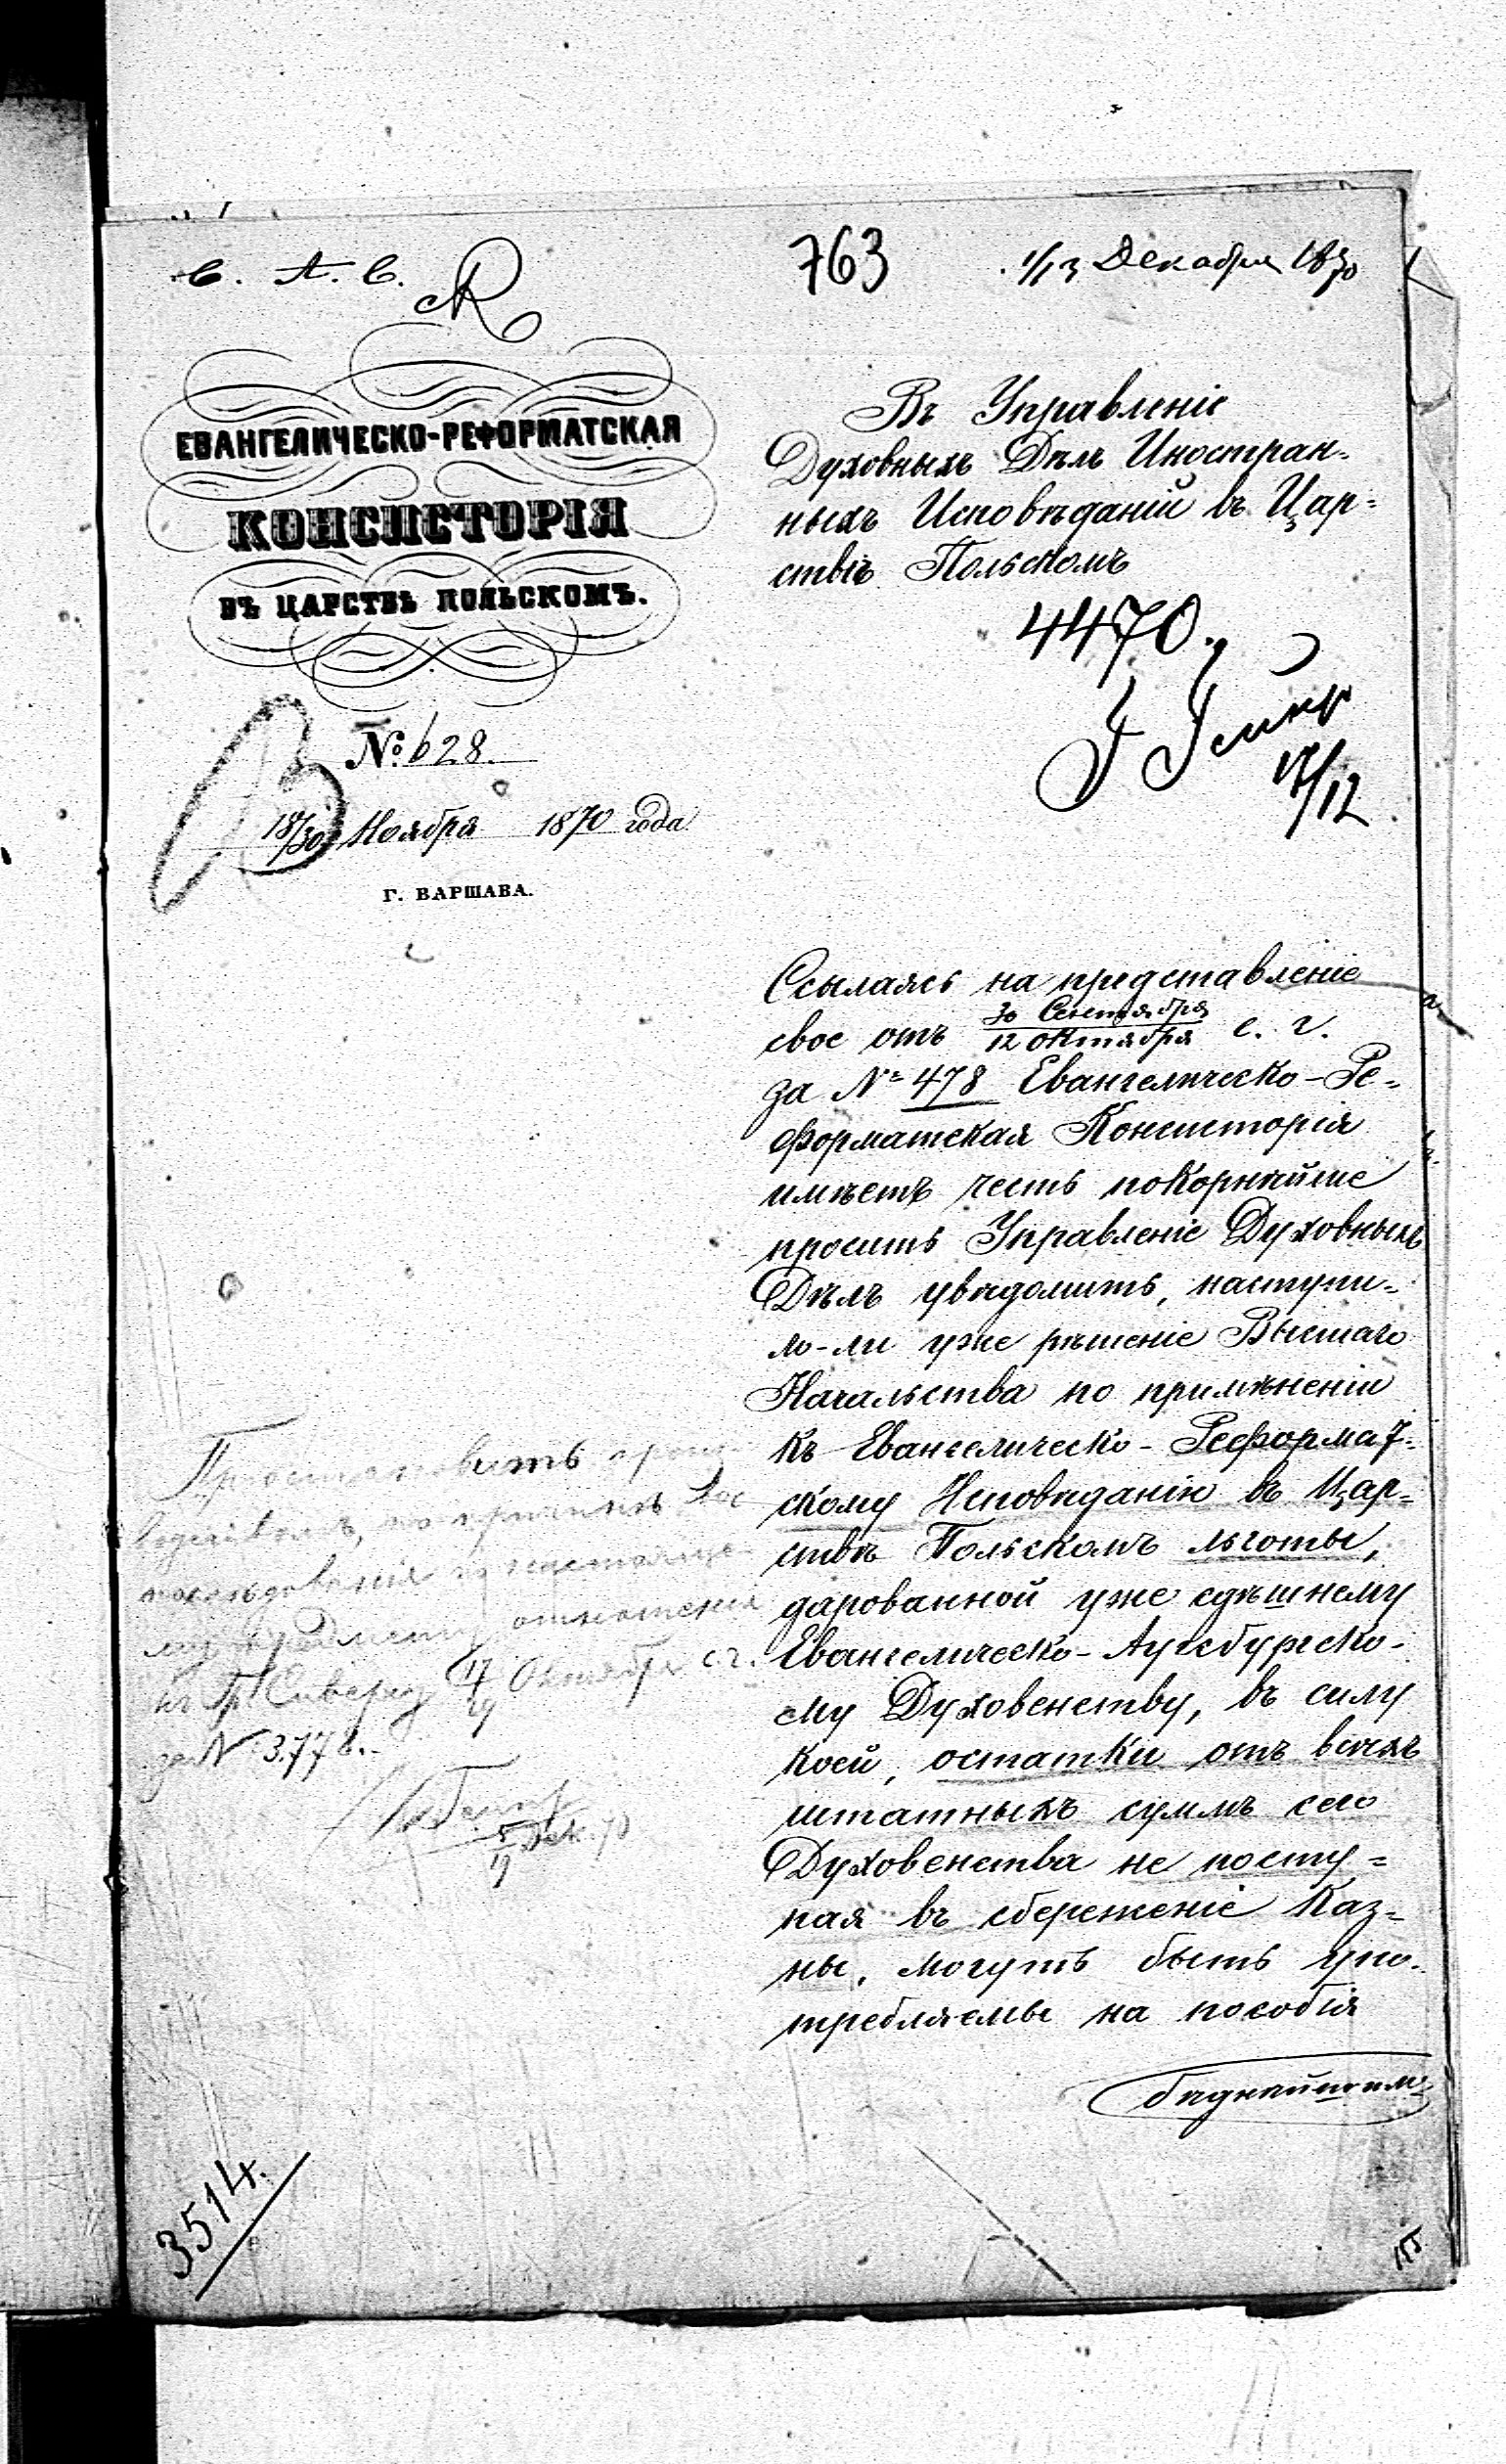 763
1/13 Декабря 1870
ЕВАНГЕЛИЧЕСКО-РЕФОРМАТСКАЯ
КОНСИСТОРІЯ
ВЪ ЦАРСТВѢ ПОЛЬСКОМЪ.
№ 628.
18/30 Ноября 1870 года
Г. ВАРШАВА.
Въ Управленіе
Духовныхъ Дѣлъ Иностран=
ныхъ Исповѣданій въ Цар=
ствіѣ Польскомъ
4470.
17/12
Ссылаясь на представленіе
свое отъ 30 Сентября / 12 Октября с. г.
за № 478 Евангелическо-Ре=
форматская Консисторія
имѣетъ честь покорнѣйше
просить Управленіе Духовныхъ
Дѣлъ увѣдомить, наступи=
ло-ли уже рѣшеніе Высшаго
Начальства по примѣненіи
къ Евангелическо-Реформат=
скому Исповѣданію въ Цар=
ствѣ Польскомъ льготы,
дарованной уже здѣшнему
Евангелическо-Аугсбургско-
му Духовенству, въ силу
коей, остатки отъ всѣхъ
штатныхъ суммъ сего
Духовенства не посту=
пая въ сбереженіе Каз=
ны, могутъ быть упо=
требляемы на пособія
бѣднѣйшимъ
Пріостановить
по
отношенія
Октября с. г.
за № 3778.
3514.
155